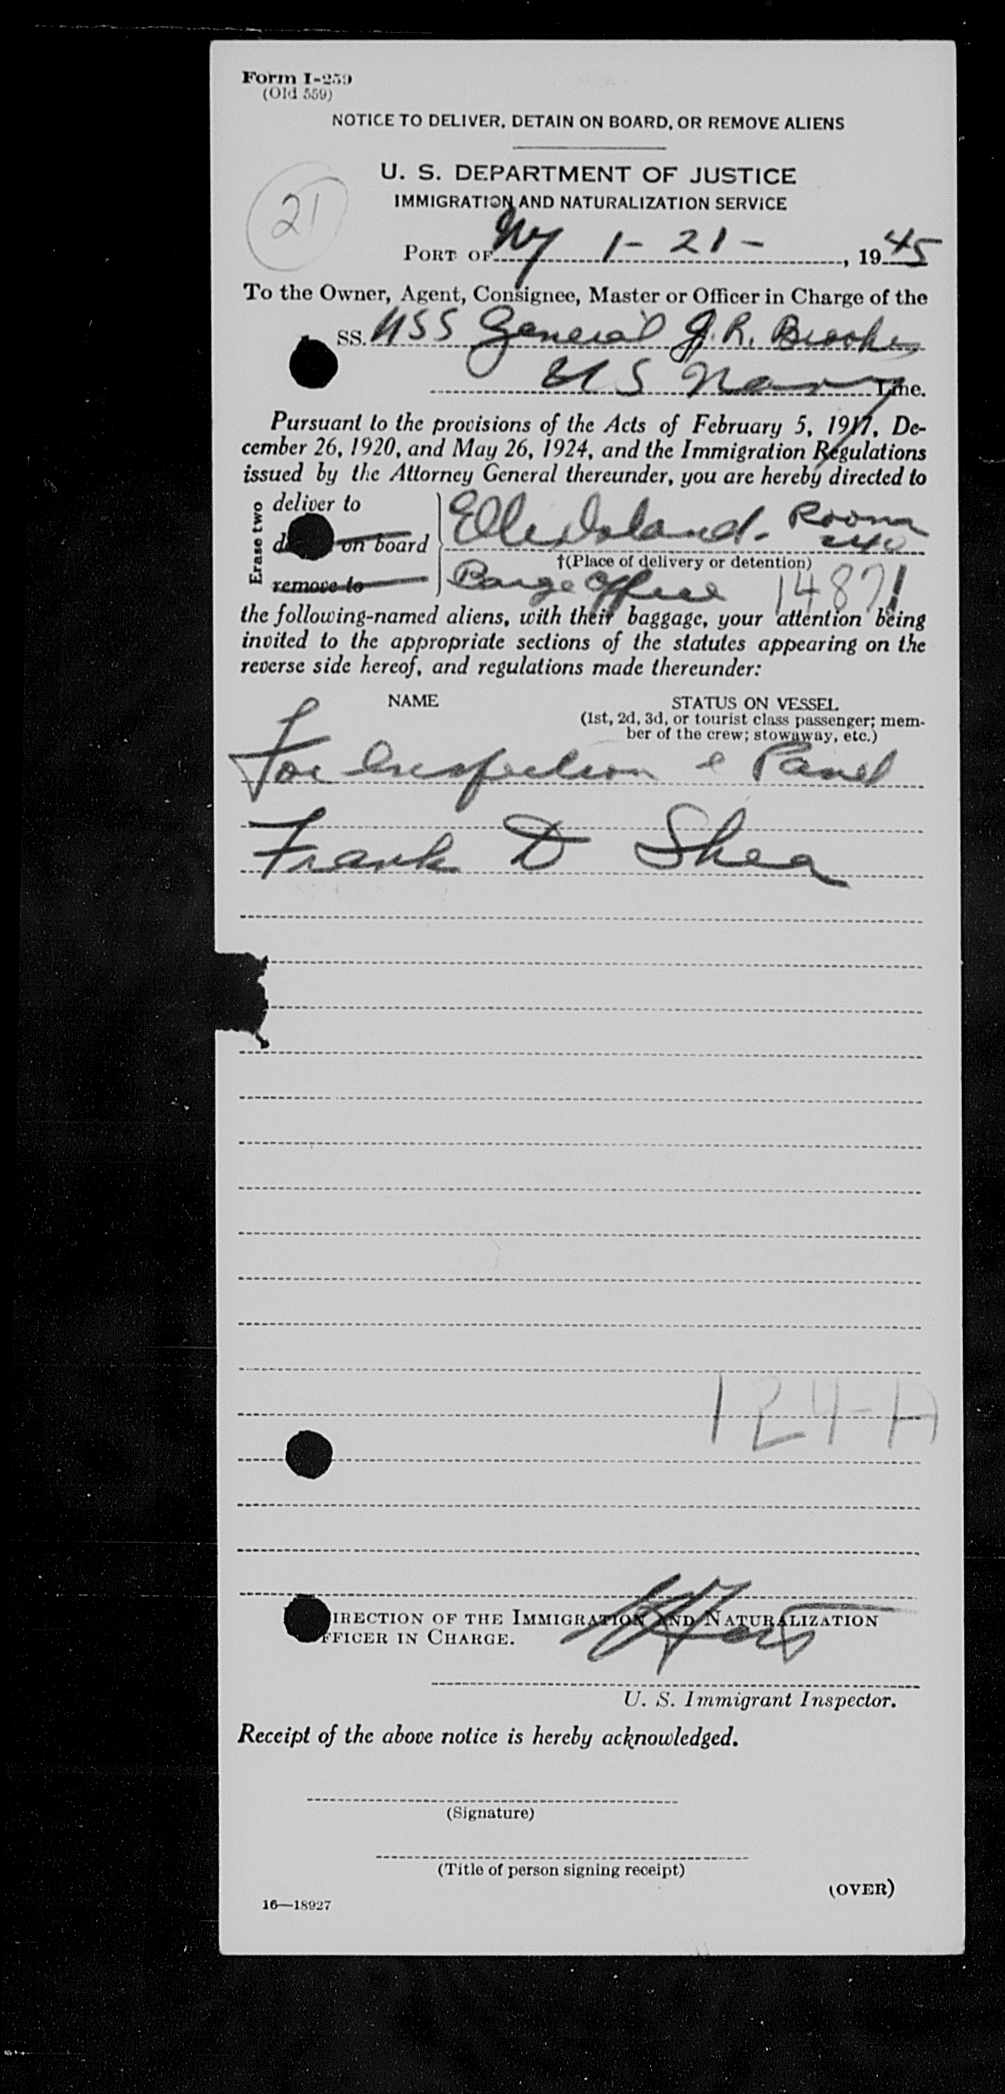 Form I-259
(Old 559)
NOTICE TO DELIVER, DETAIN ON BOARD, OR REMOVE ALIENS
U. S. DEPARTMENT OF JUSTICE
IMMIGRATION AND NATURALIZATION SERVICE
21
PORT OF NY 1-21-, 1945
To the Owner, Agent, Consignee, Master or Officer in Charge of the
SS. USS General J.R. Brooke
US Navy Line.
Pursuant to the provisions of the Acts of February 5, 1917, De-
cember 26, 1920, and May 26, 1924, and the Immigration Regulations
issued by the Attorney General thereunder, you are hereby directed to
Erase two
deliver to
on board
remove to
Ellis Island. Room
240
†(Place of delivery or detention)
Barge Office 14871
the following-named aliens, with their baggage, your attention being
invited to the appropriate sections of the statutes appearing on the
reverse side hereof, and regulations made thereunder:
NAME
STATUS ON VESSEL
(1st, 2d, 3d, or tourist class passenger; mem-
ber of the crew; stowaway, etc.)
For Inspection & Panel
Frank D Shea
124-A
IRECTION OF THE IMMIGRATION AND NATURALIZATION
FFICER IN CHARGE.
U. S. Immigrant Inspector.
Receipt of the above notice is hereby acknowledged.
(Signature)
(Title of person signing receipt)
(OVER)
16—18927